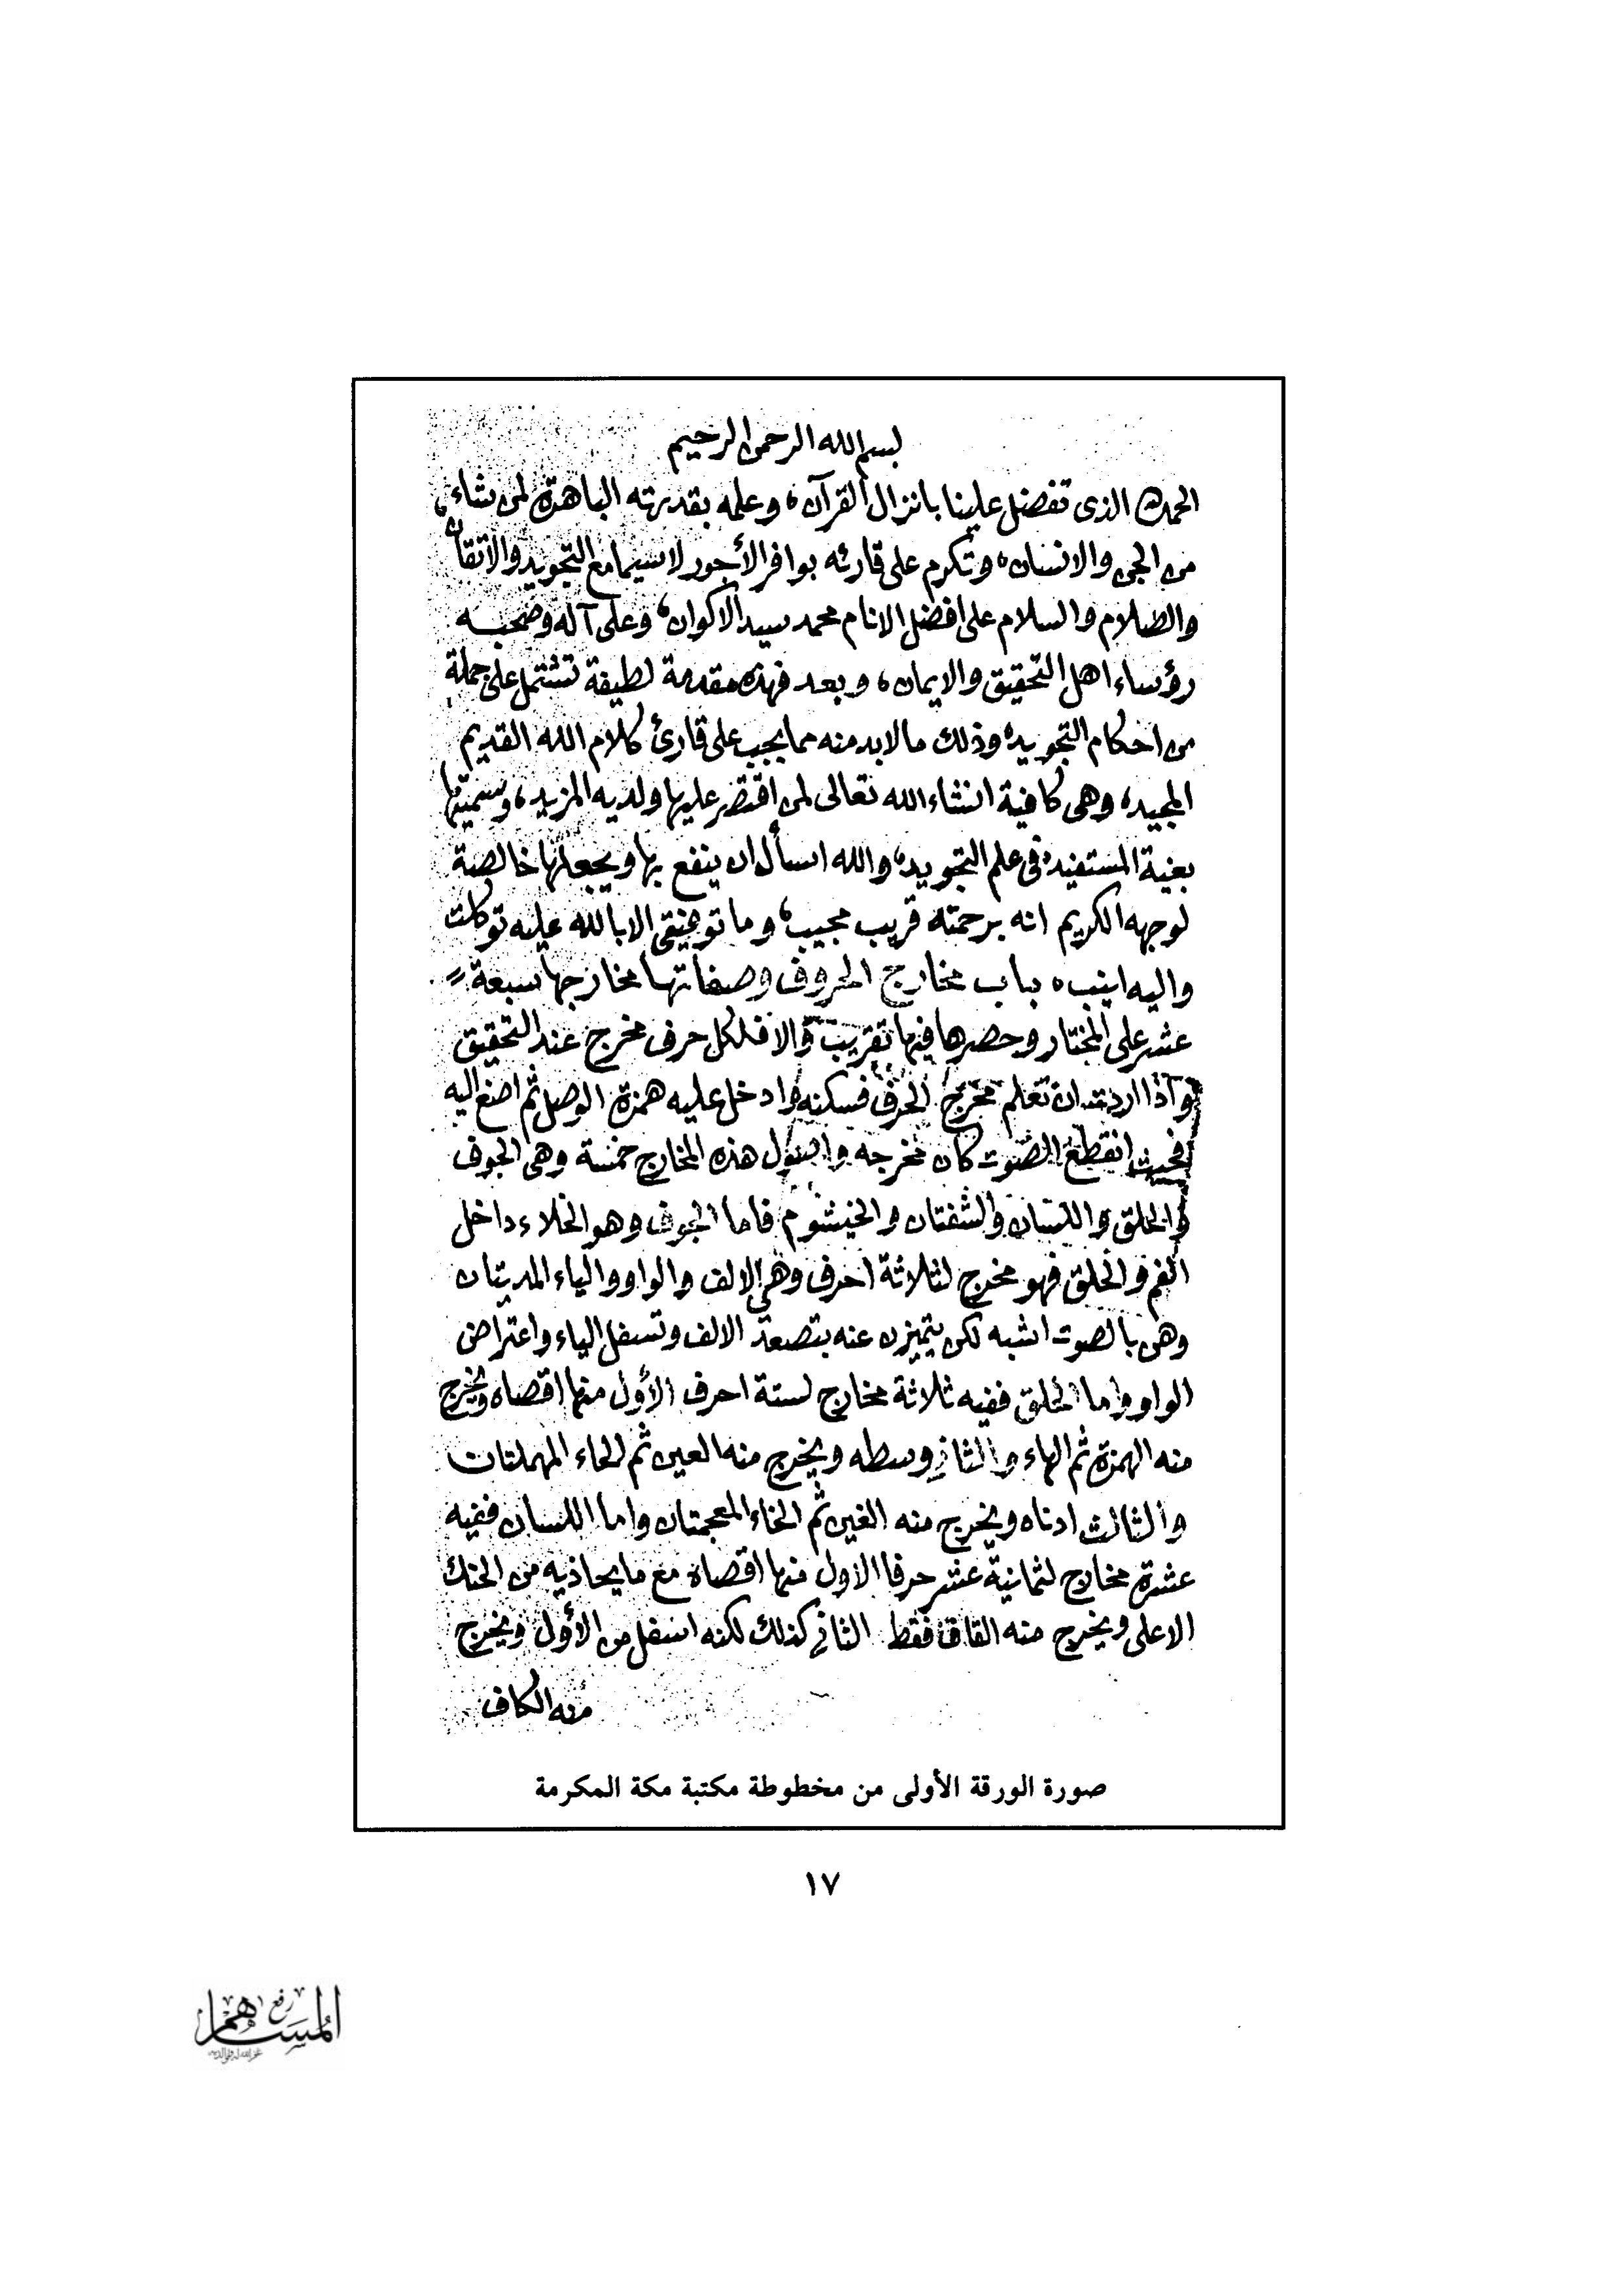 بسم الله الرحمن الرحيم
الحمد لله الذى تفضل علينا بانزال القرآن، وعلمه بقدرته الباهرة لمن شاء،
من الجن والانسان، وتكرم على قارئه بوافر الأجور لا سيما مع التجويد والاتقان
والصلاة والسلام على افضل الانام محمد سيد الاكوان، وعلى آله وصحبه
رؤساء اهل التحقيق والايمان، وبعد فهذه مقدمة لطيفة تشتمل على جملة
من احكام التجويد، وذلك مالابد منه مما يجب على قارئ كلام الله القديم
المجيد، وهى كافية انشاء الله تعالى لمن اقتصر عليها ولديه المزيد، وسميتها
بغية المستفيد، فى علم التجويد، والله اسأل ان ينفع بها ويجعلها خالصة
لوجهه الكريم انه برحمته قريب مجيب، وما توفيقى الا بالله عليه توكلت
واليه انيب، باب مخارج الحروف وصفاتها مخارجها سبعة
عشر على المختار وحصرها فيها تقريب والا فلكل حرف مخرج عند التحقيق
وآذا اردت ان تعلم مخرج الحرف فسكنه وادخل عليه همزة الوصل ثم اصغ اليه
فحيث انقطع الصوت كان مخرجه واصول هذه المخارج خمسة وهى الجوف
والحلق واللسان والشفتان والخيشوم فاما الجوف وهو الخلاء داخل
الفم والحلق فهو مخرج لثلاثة احرف وهى الالف والواو والياء المديتان
وهى بالصوت اشبه لكن يتميزن عنه بتصعد الالف وتسفل الياء واعتراض
الواو واما الحلق ففيه ثلاثة مخارج لستة احرف الأول منها اقصاه ويخرج
منه الهمزة ثم الهاء والثانى وسطه ويخرج منه العين ثم الحاء المهملتان
والثالث ادناه ويخرج منه الغين ثم الخاء المعجمتان واما اللسان ففيه
عشرة مخارج لثمانية عشر حرفا الاول منها اقصاه مع ما يحاذيه من الحنك
الاعلى ويخرج منه القاف فقط الثانى كذلك لكنه اسفل من الأول ويخرج
منه الكاف
صورة الورقة الأولى من مخطوطة مكتبة مكة المكرمة
١٧
رفع
المساهم